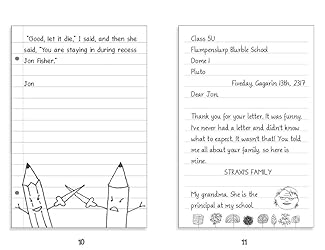 "Good, let it die," I said, and then she
said, "You are staying in during recess
Jon Fisher."
Jon
10
Class 5U
Flumpenslurp Blurble School
Dome 1
Pluto
Fiveday, Gagarin 13th, 2317
Dear Jon,
Thank you for your letter. It was funny.
I've never had a letter and didn't know
what to expect. It wasn't that! You told
me all about your family, so here is
mine.
STRAXI'S FAMILY
My grandma. She is the
principal at my school.
11